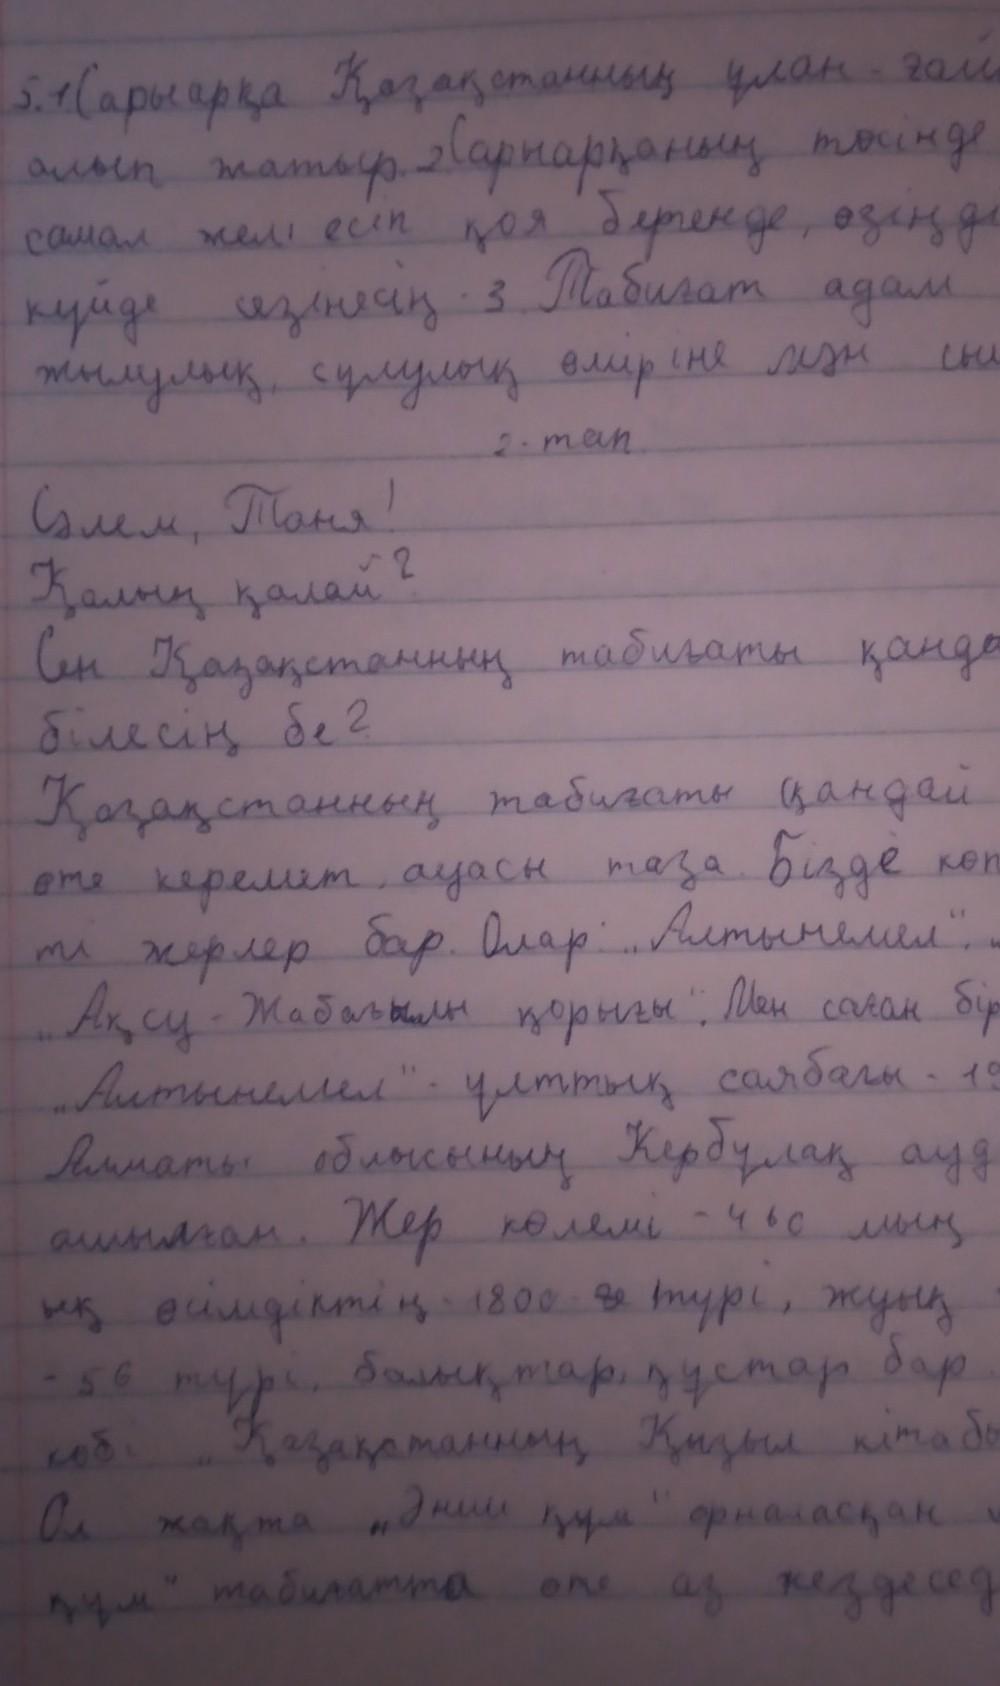 5.1 Сарыарқа Қазақстанның ұлан - ғай
алып жатыр. 2 Сарыарқаның төсінде
самал желі есіп қоя бергенде, өзіңді
күйде сезінесің. 3. Табиғат адам
жылулық, сұлулық өміріне мән сый
2. тап
Сәлем, Таня!
Қалың қалай?
Сен Қазақстанның табиғаты қанда
білесің бе?
Қазақстанның табиғаты қандай
өте керемет, ауасы таза. Бізде көп
ті жерлер бар. Олар: „Алтынемел",
„Ақсу - Жабағылы қорығы". Мен саған бір
„Алтынемел" - ұлттық саябағы - 19
Алматы облысының Кербұлақ ауд
ашылған. Жер көлемі - 460 мың
ық өсімдіктің - 1800 түрі, жуық
- 56 түрі, балықтар, құстар бар
көбі „Қазақстанның Қызыл кітабы
Ол жақта „Әнші құм" орналасқан
құм" табиғатта өте аз кездесед